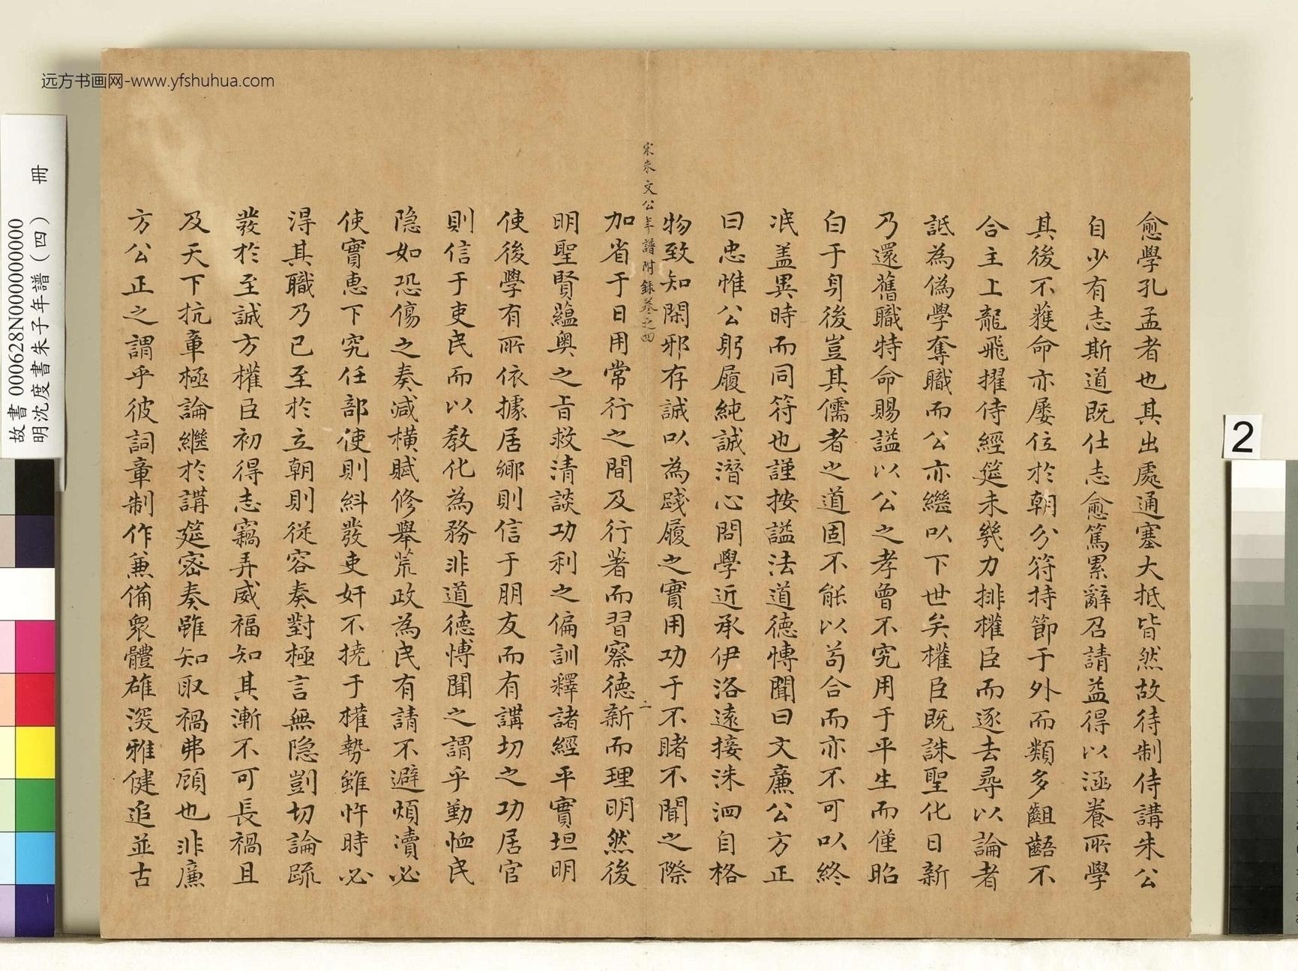 远方书画网-www.yfshuhua.com
愈學孔孟者也其出處通塞大抵皆然故待制侍講朱公
自少有志斯道既仕志愈篤累辭召請益得以涵養所學
其後不獲命亦屢位於朝分符持節于外而類多齟齬不
合主上龍飛擢侍經筵未幾力排權臣而逐去尋以論者
詆為偽學奪職而公亦繼以下世矣權臣既誅聖化日新
乃還舊職特命賜謚以公之孝曾不究用于平生而僅昭
白于身後豈其儒者之道固不能以苟合而亦不可以終
泯盖異時而同符也謹按謚法道德博聞曰文廉公方正
曰忠惟公躬履純誠潛心問學近承伊洛遠接洙泗自格
物致知閑邪存誠以為踐履之實用功于不睹不聞之際
宋朱文公年譜附錄卷之四
二
加省于日用常行之間及行著而習察德新而理明然後
明聖賢蘊奥之旨救清談功利之偏訓釋諸經平實坦明
使後學有所依據居鄉則信于朋友而有講切之功居官
則信于吏民而以教化為務非道德博聞之謂乎勤恤民
隐如恐傷之奏減橫賦修舉荒政為民有請不避煩瀆必
使實惠下究任部使則糾發吏奸不撓于權勢雖忤時必
得其職乃已至於立朝則從容奏對極言無隐剴切論疏
發於至誠方權臣初得志竊弄威福知其漸不可長禍且
及天下抗章極論繼於講筵密奏雖知取禍弗顧也非廉
方公正之謂乎彼詞章制作兼備衆體雄深雅健追並古
故書 000628N000000000 冊
明沈度書朱子年譜(四)
2